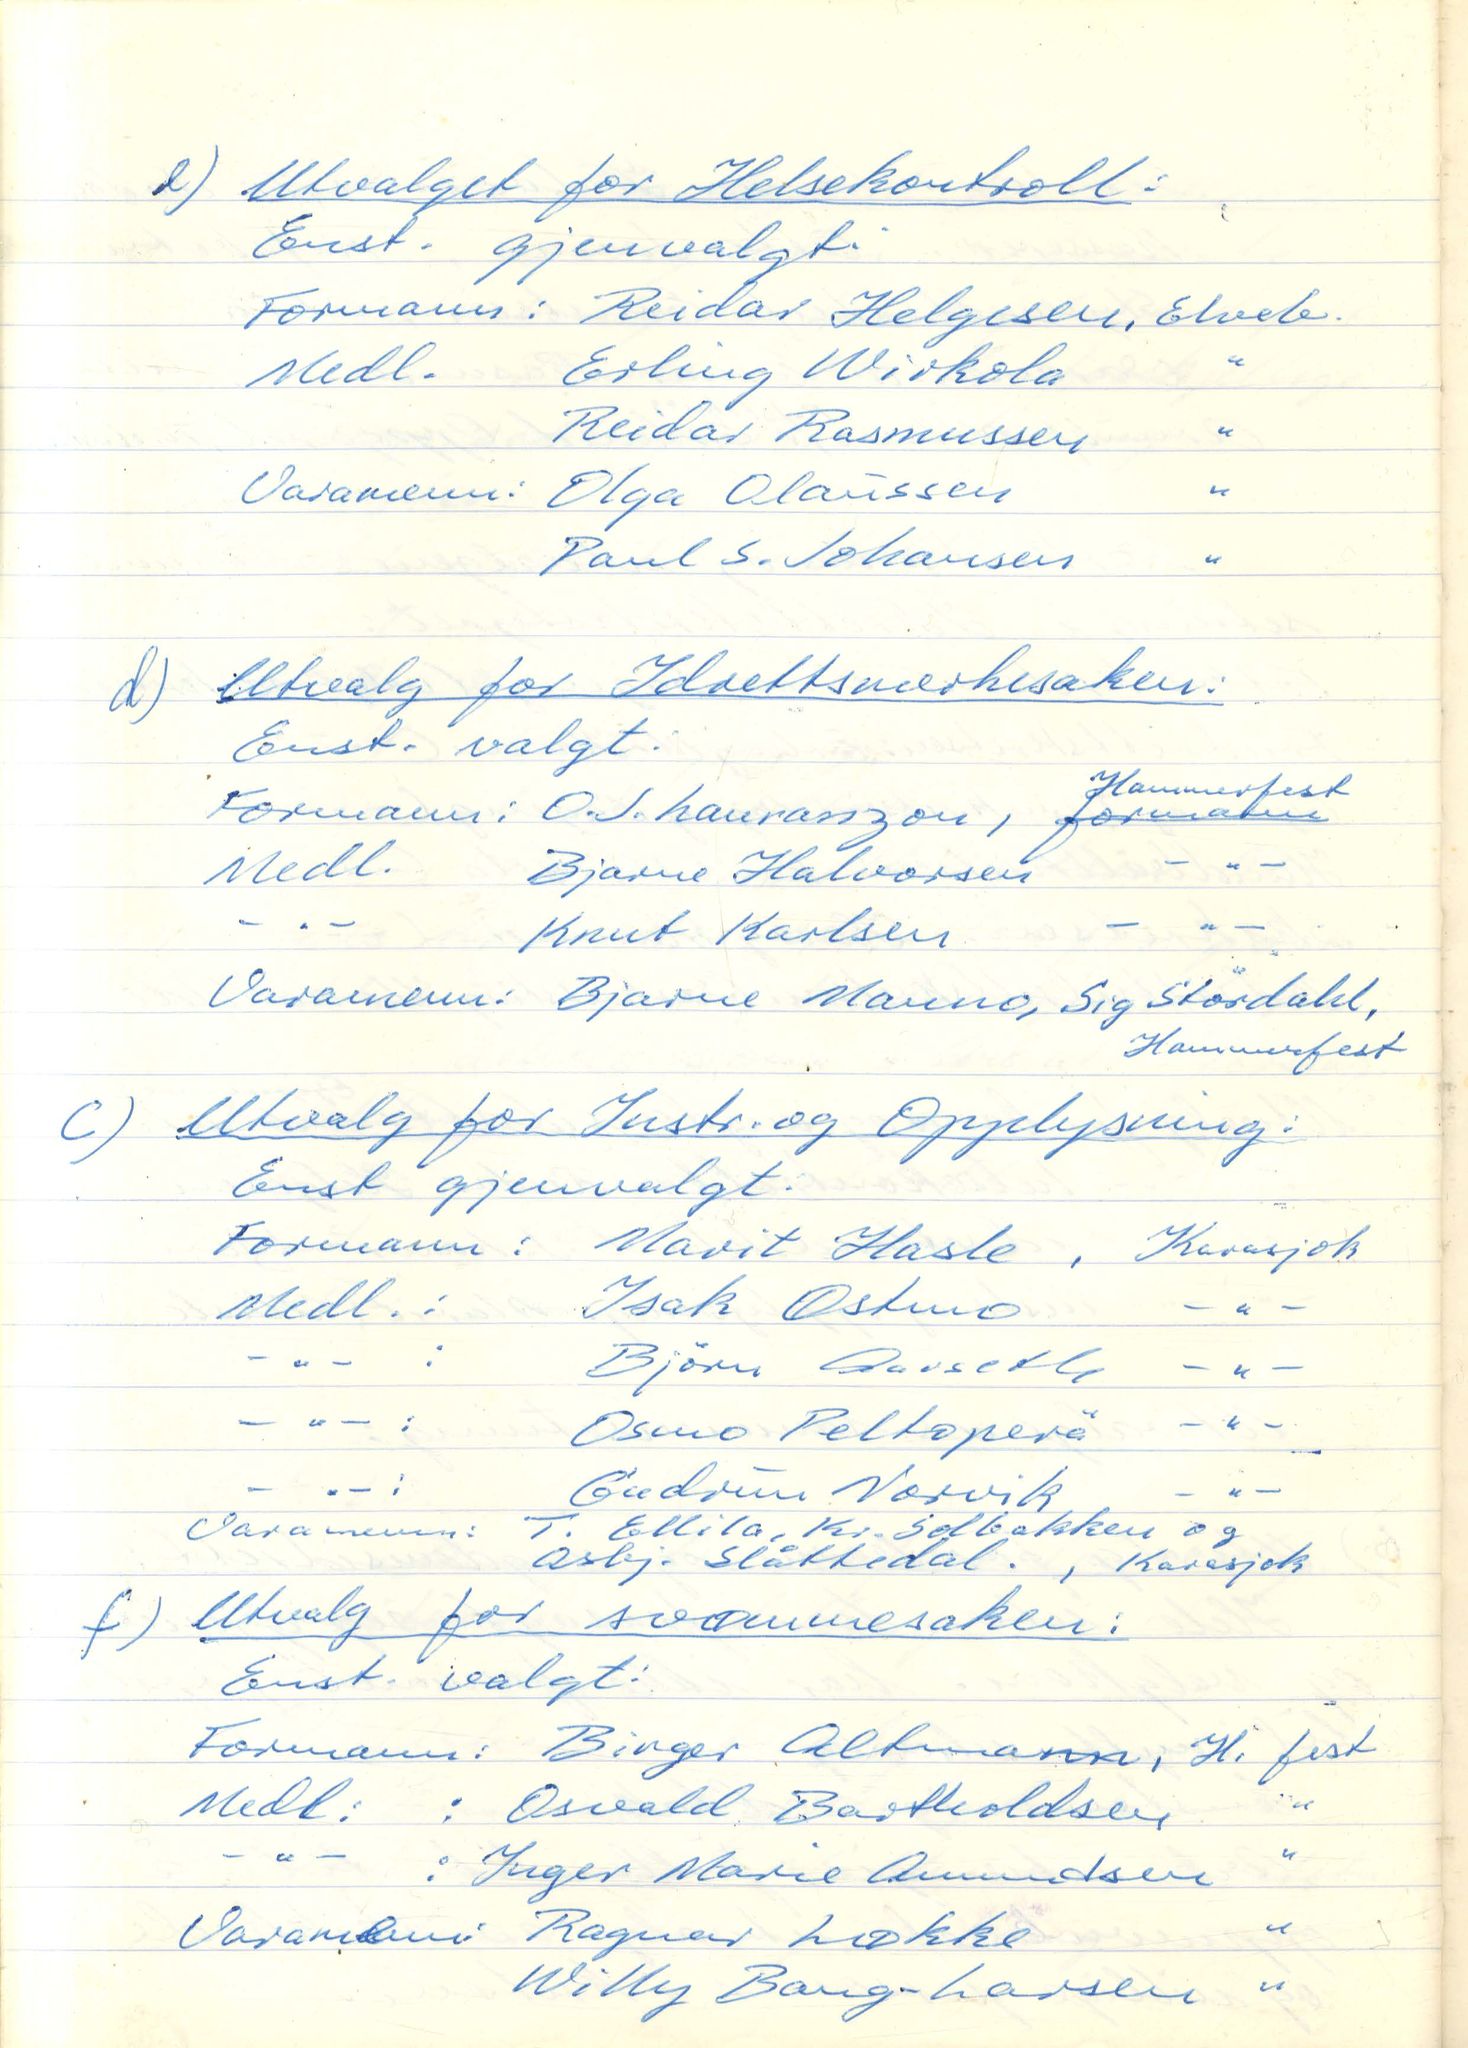 e) Utvalget for Helsekontroll:
Enst. gjenvalgt:
Formann: Reidar Helgesen, Elveb.
Medl. Erling Wirkola "
Reidar Rasmussen "
Varamenn: Olga Olaussen "
Paul S. Johansen "
d) Utvalg for Idrettsmerkesaken:
Enst. valgt:
Hammerfest
Formann: O.J. Lauranzon, formann
Medl. Bjarne Halvorsen - " -
- " - Knut Karlsen - " -
Varamenn: Bjarne Manno, Sig Stördahl,
Hammerfest
c) Utvalg for Instr. og Opplysning:
Enst gjenvalgt:
Formann: Marit Hasle, Karasjok
Medl.: Isak Østmo - " -
- " - : Björn Aarseth - " -
- " - : Osmo Peltoperä - " -
- " - : Gudrun Norvik - " -
Varamenn: T. Ellila, Kr. Solbakken og
Asbj. Slåttedal., Karasjok
f) Utvalg for svømmesaken:
Enst. valgt:
Formann: Birger Altmann, H. fest
Medl: : Osvald Bartholdsen "
- " - : Inger Marie Amundsen "
Varamenn: Ragnar Løkke "
Willy Bang-Larsen "